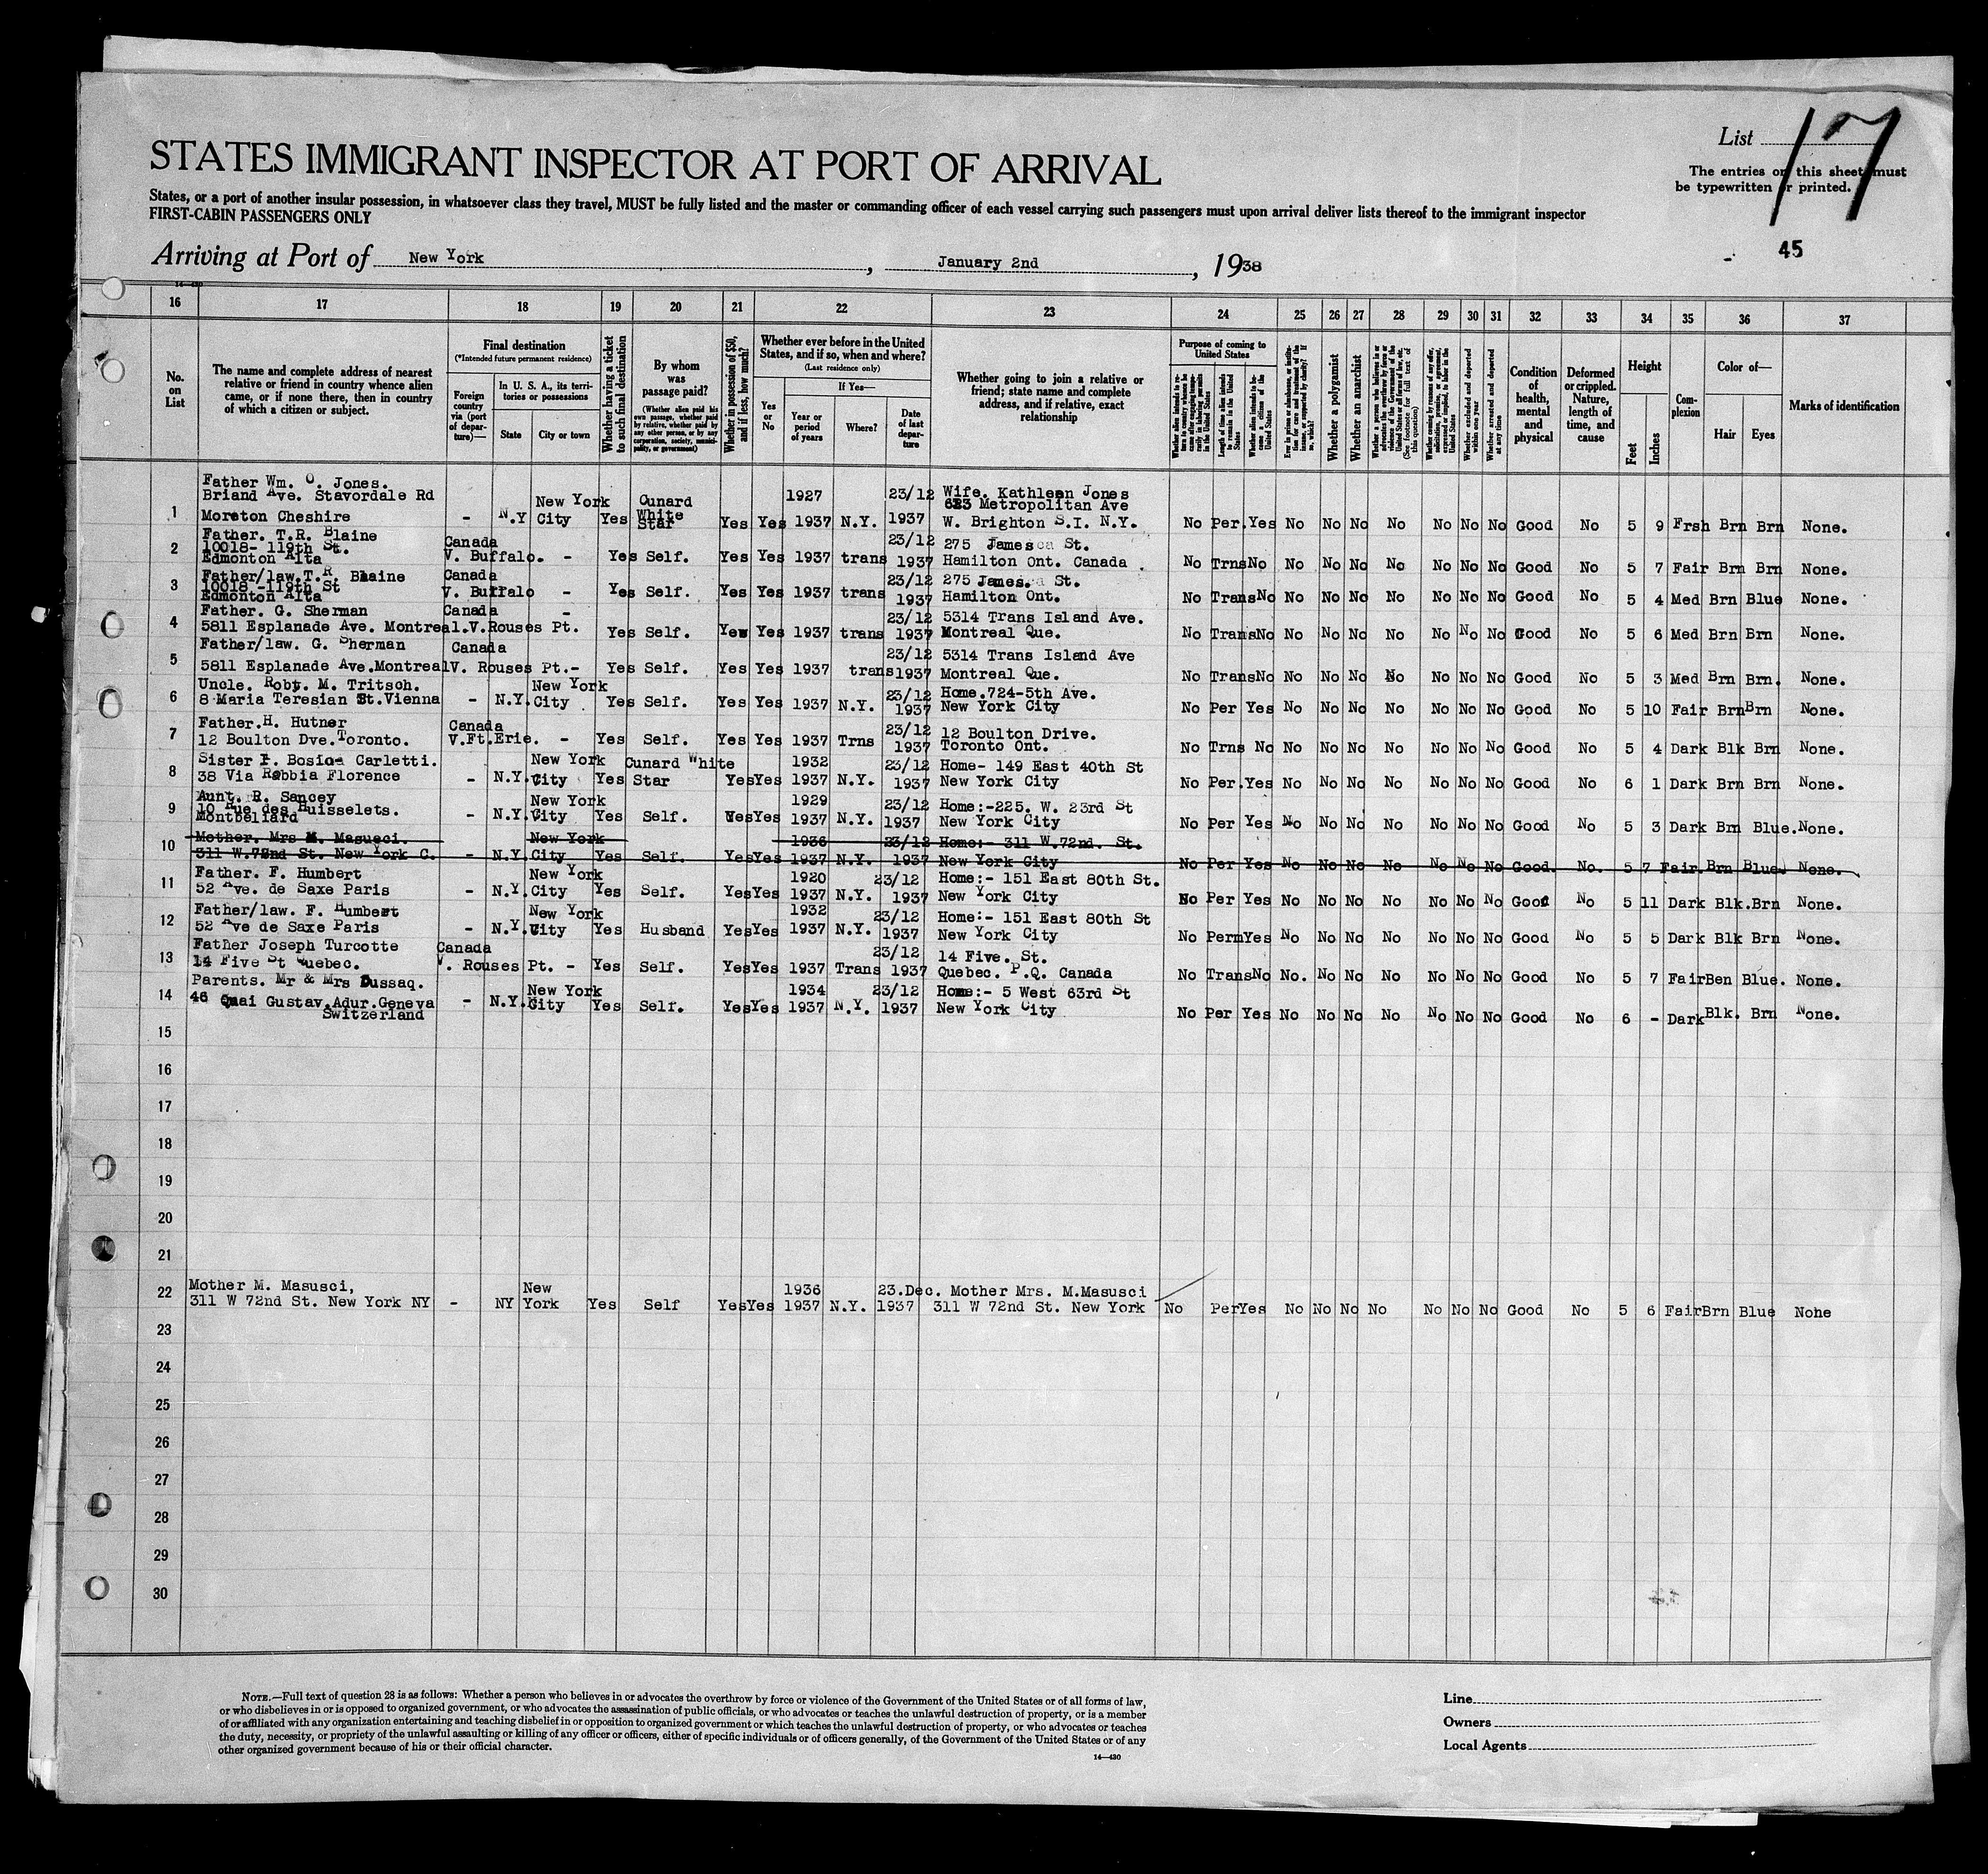 List 17
STATES IMMIGRANT INSPECTOR AT PORT OF ARRIVAL
The entries on this sheet must
be typewritten or printed.
States, or a port of another insular possession, in whatsoever class they travel, MUST be fully listed and the master or commanding officer of each vessel carrying such passengers must upon arrival deliver lists thereof to the immigrant inspector
FIRST-CABIN PASSENGERS ONLY
45
Arriving at Port of New York, January 2nd, 1938
14—430
16 17 18 19 20 21 22 23 24 25 26 27 28 29 30 31 32 33 34 35 36 37
No. on List
The name and complete address of nearest relative or friend in country whence alien came, or if none there, then in country of which a citizen or subject.
Final destination
(*Intended future permanent residence)
Foreign country via (port of departure)—
In U. S. A., its territories or possessions
State
City or town
Whether having a ticket to such final destination
By whom was passage paid?
(Whether alien paid his own passage, whether paid by relative, whether paid by any other person, or by any corporation, society, municipality, or government)
Whether in possession of $50, and if less, how much?
Whether ever before in the United States, and if so, when and where?
(Last residence only)
Yes or No
If Yes—
Year or period of years
Where?
Date of last departure
Whether going to join a relative or friend; state name and complete address, and if relative, exact relationship
Purpose of coming to United States
Whether alien intends to return to country whence he came after engaging temporarily in laboring pursuits in the United States
Length of time alien intends to remain in the United States
Whether alien intends to become a citizen of the United States
Ever in prison or almshouse, or institution for care and treatment of the insane, or supported by charity? If so, which?
Whether a polygamist
Whether an anarchist
Whether a person who believes in or advocates the overthrow by force or violence of the Government of the United States or all forms of law, etc. (See footnote for full text of this question)
Whether coming by reason of any offer, solicitation, promise, or agreement, expressed or implied, to labor in the United States
Whether excluded and deported within one year
Whether arrested and deported at any time
Condition of health, mental and physical
Deformed or crippled. Nature, length of time, and cause
Height
Feet
Inches
Complexion
Color of—
Hair
Eyes
Marks of identification
Father Wm. O. Jones.
Briand Ave. Stavordale Rd New York Cunard 1927 23/12 Wife. Kathleen Jones
623 Metropolitan Ave
1 Moreton Cheshire - N.Y City Yes White Star Yes Yes 1937 N.Y. 1937 W. Brighton S.I. N.Y. No Per. Yes No No No No No No No Good No 5 9 Frsh Brn Brn None.
Father. T.R. Blaine
2 10018- 119th St. Canada 23/12 275 James St.
Edmonton Alta V. Buffalo. - Yes Self. Yes Yes 1937 trans 1937 Hamilton Ont. Canada. No Trns No No No No No No No No Good No 5 7 Fair Brn Brn None.
Father/law. T.R Blaine Canada
3 10018- 119th St 23/12 275 James. St.
Edmonton Alta V. Buffalo - Yes Self. Yes Yes 1937 trans 1937 Hamilton Ont. No Trans No No No No No No No No Good No 5 4 Med Brn Blue None.
Father. G. Sherman Canada - 23/12 5314 Trans Island Ave.
4 5811 Esplanade Ave. Montreal. V.Rouses Pt. Yes Self. Yes Yes 1937 trans 1937 Montreal Que. No Trans No No No No No No No No Good No 5 6 Med Brn Brn None.
Father/law. G. Sherman Canada 23/12 5314 Trans Island Ave
5 5811 Esplanade Ave.Montreal V. Rouses Pt.- Yes Self. Yes Yes 1937 trans 1937 Montreal Que. No Trans No No No No No No No No Good No 5 3 Med Brn Brn. None.
Uncle. Robt. M. Tritsch. New York 23/12 Home.724-5th Ave.
6 8 Maria Teresian St.Vienna - N.Y. City Yes Self. Yes Yes 1937 N.Y. 1937 New York City No Per Yes No No No No No No No Good No 5 10 Fair Brn Brn None.
Father.H. Hutner Canada 23/12 12 Boulton Drive.
7 12 Boulton Dve.Toronto. V.Ft.Erie. - Yes Self. Yes Yes 1937 Trns 1937 Toronto Ont. No Trns No No No No No No No No Good No 5 4 Dark Blk Brn None.
Sister F. Bosio- Carletti. New York Cunard White 1932 23/12 Home- 149 East 40th St
8 38 Via Robbia Florence - N.Y. City Yes Star Yes Yes 1937 N.Y. 1937 New York City No Per. Yes No No No No No No No Good No 6 1 Dark Brn Brn None.
Aunt. R. Sancey New York 1929 23/12 Home:-225. W. 23rd St
9 10 Rue des Huisselets.
Montbeliard - N.Y. City Yes Self. Yes Yes 1937 N.Y. 1937 New York City No Per Yes No No No No No No No Good No 5 3 Dark Brn Blue. None.
Mother. Mrs M. Masucci. New York 1936 23/12 Home:- 311 W.72nd. St.
10 311 W.72nd St. New York C. - N.Y. City Yes Self. Yes Yes 1937 N.Y. 1937 New York City No Per Yes No No No No No No No Good. No. 5 7 Fair. Brn Blue. None.
Father. F. Humbert New York 1920 23/12 Home:- 151 East 80th St.
11 52 Ave. de Saxe Paris - N.Y. City Yes Self. Yes Yes 1937 N.Y. 1937 New York City No Per Yes No No No No No No No Good No 5 11 Dark Blk.Brn None.
Father/law. F. Humbert New York 1932 23/12 Home:- 151 East 80th St
12 52 Ave de Saxe Paris - N.Y. City Yes Husband Yes Yes 1937 N.Y. 1937 New York City No Perm Yes No No No No No No No Good No 5 5 Dark Blk Brn None.
Father Joseph Turcotte Canada 23/12 14 Five. St.
13 14 Five St Quebec. V. Rouses Pt. - Yes Self. Yes Yes 1937 Trans 1937 Quebec. P.Q. Canada No Trans No No. No No No No No No Good No 5 7 Fair Ben Blue. None.
Parents. Mr & Mrs Dussaq. New York 1934 23/12 Home:- 5 West 63rd St
14 46 Quai Gustav.Adur.Geneva - N.Y. City Yes Self. Yes Yes 1937 N.Y. 1937 New York City No Per Yes No No No No No No No Good No 6 - Dark Blk. Brn None.
Switzerland
15
16
17
18
19
20
21
Mother M. Masusci, New 1936 23.Dec. Mother Mrs. M.Masusci
22 311 W 72nd St. New York NY - NY York Yes Self Yes Yes 1937 N.Y. 1937 311 W 72nd St. New York No Per Yes No No No No No No No Good No 5 6 Fair Brn Blue None
23
24
25
26
27
28
29
30
NOTE.—Full text of question 28 is as follows: Whether a person who believes in or advocates the overthrow by force or violence of the Government of the United States or of all forms of law,
or who disbelieves in or is opposed to organized government, or who advocates the assassination of public officials, or who advocates or teaches the unlawful destruction of property, or is a member
of or affiliated with any organization entertaining and teaching disbelief in or opposition to organized government or which teaches the unlawful destruction of property, or who advocates or teaches
the duty, necessity, or propriety of the unlawful assaulting or killing of any officer or officers, either of specific individuals or of officers generally, of the Government of the United States or of any
other organized government because of his or their official character.
14—430
Line
Owners
Local Agents